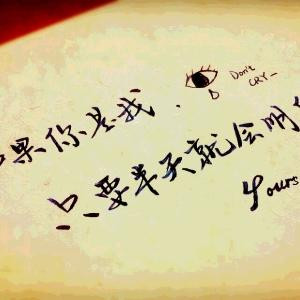 如果你是我.
Don't
CRY-
只要半天就会明
yours